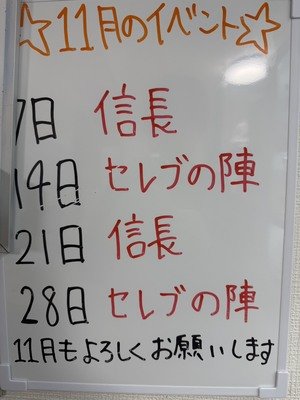 ☆11月のイベント☆
7日 信長
14日 セレブの陣
21日 信長
28日 セレブの陣
11月もよろしくお願いします